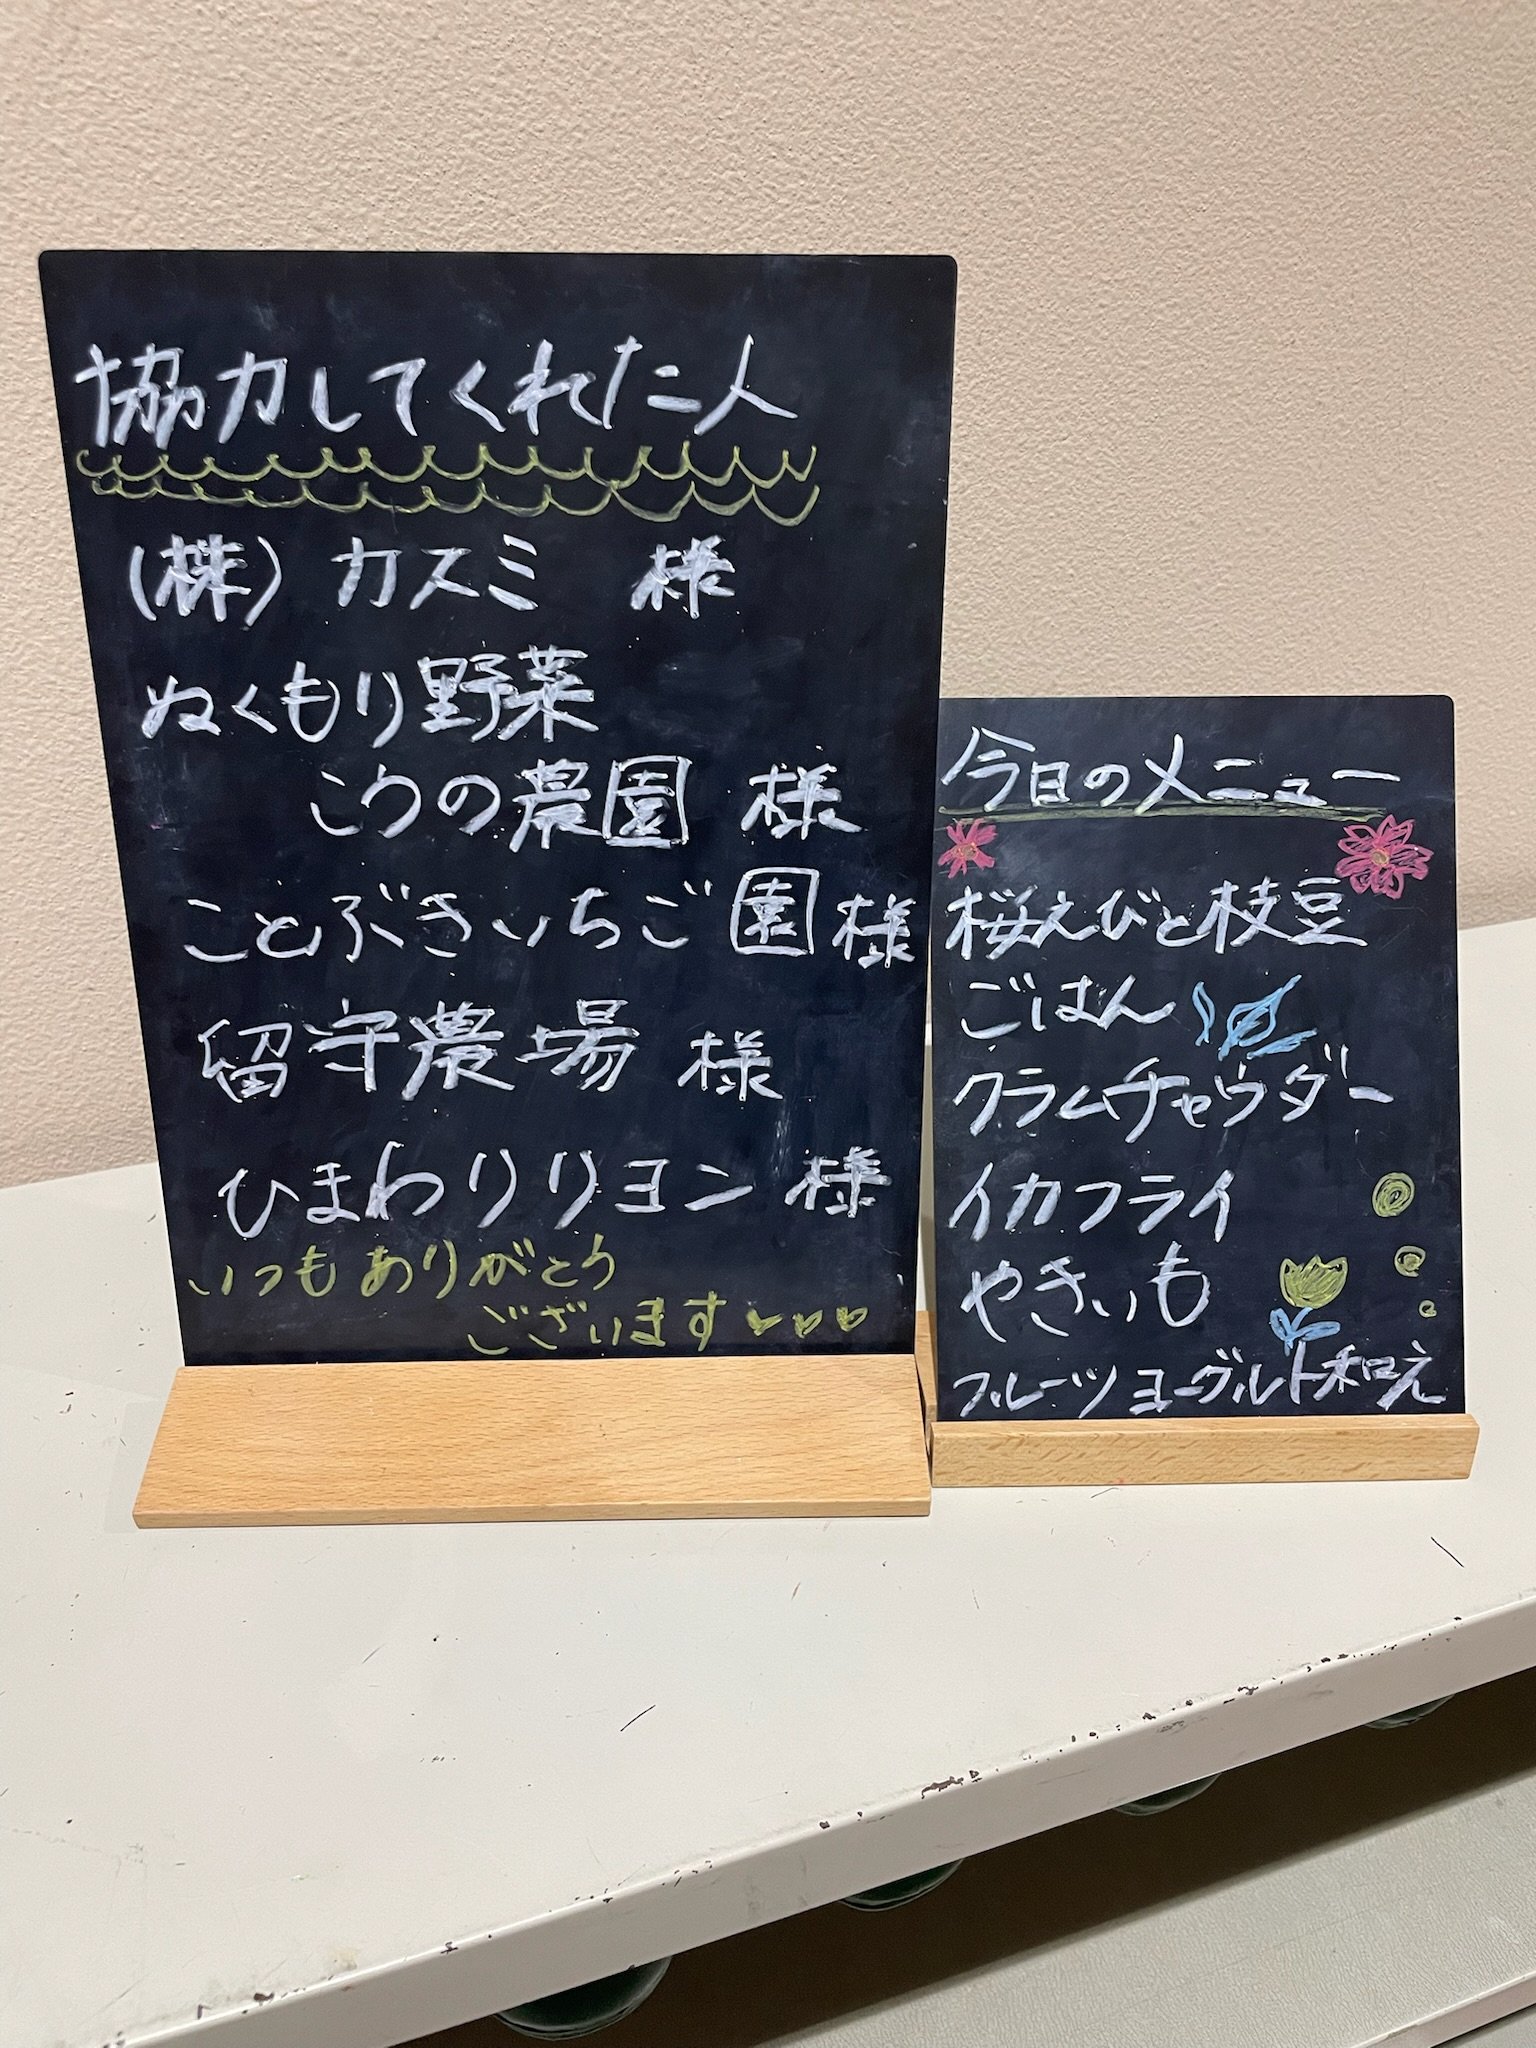 協力してくれた人
(株) カスミ 様
ぬくもり野菜
こうの農園 様
ことぶきいちご園様
留守農場 様
ひまわりリヨン 様
いつもありがとう
ございます♥♥♥
今日のメニュー
桜えびと枝豆
ごはん
クラムチャウダー
イカフライ
やきいも
フルーツヨーグルト和え